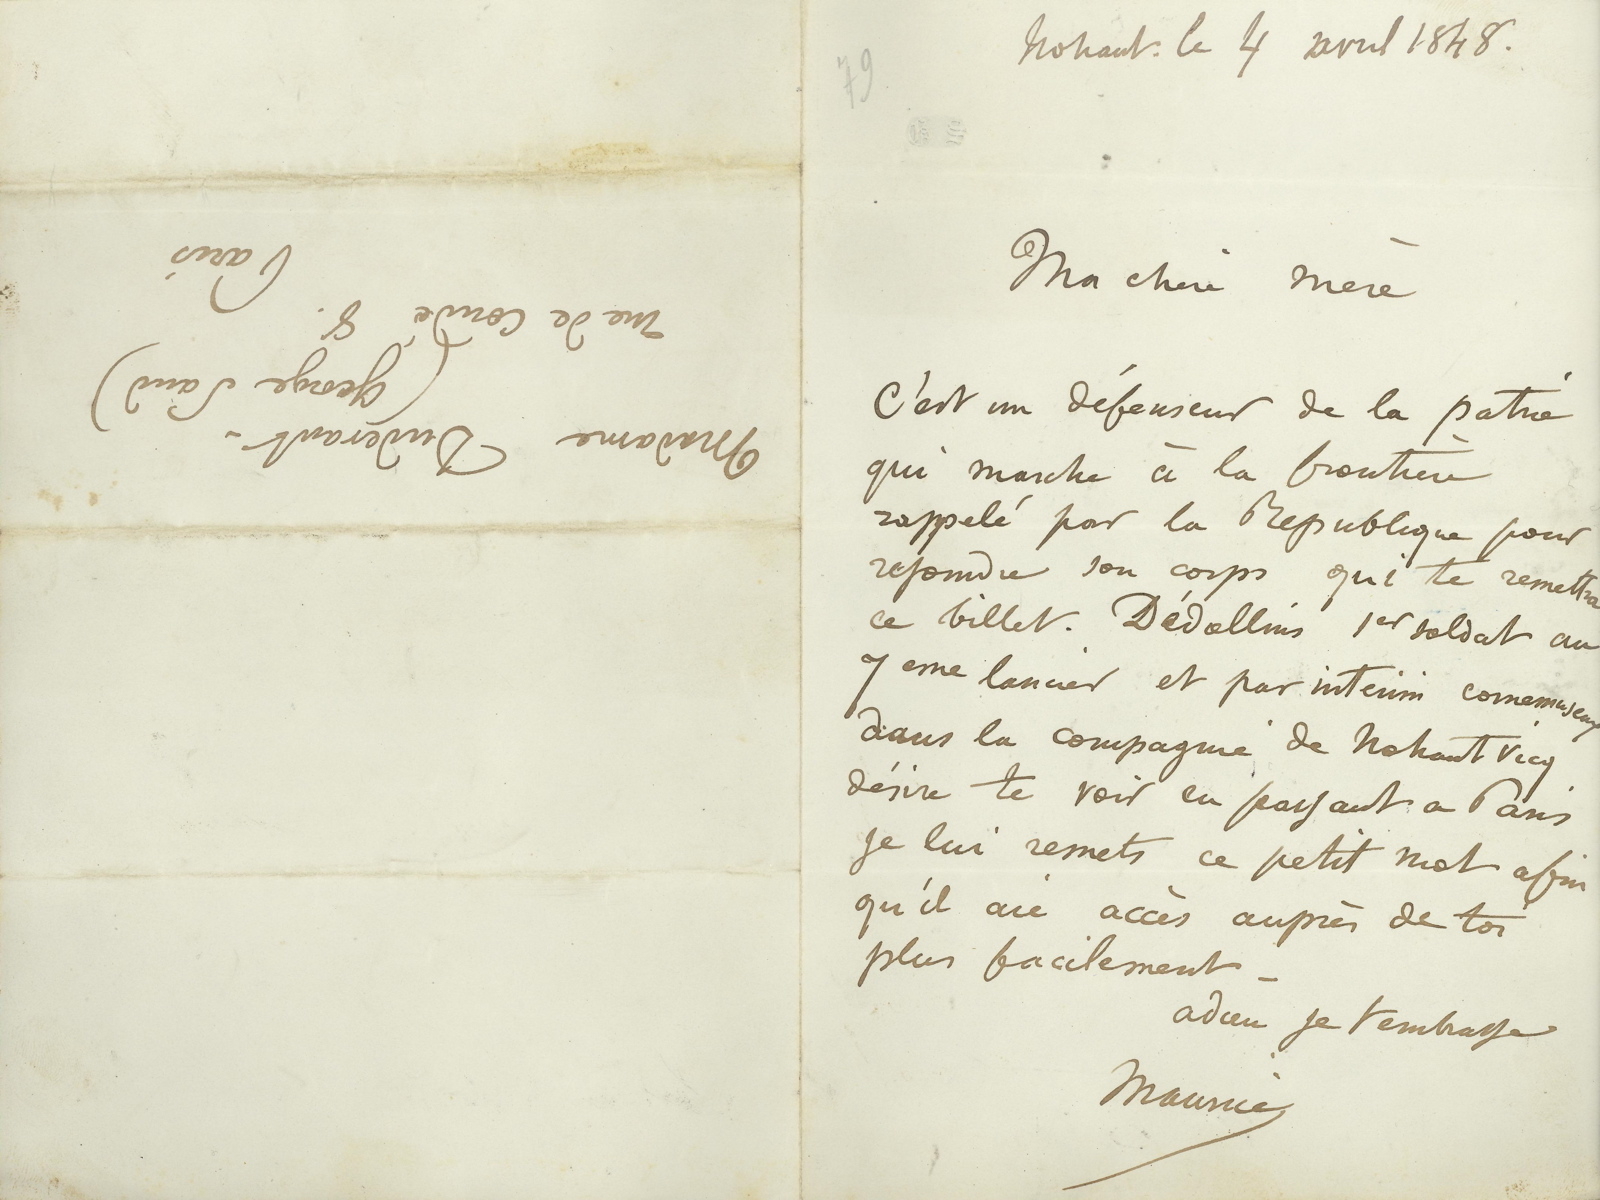 Madame Dudevant -
(George Sand)
rue de Condé 8.
Paris
79
Nohant. le 4 avril 1848.
Ma chere mère
C'est un défenseur de la patrie
qui marche à la frontière
rappelé par la Republique pour
rejoindre son corps qui te remettra
ce billet. Dédollins 1er soldat au
7eme lancier et par interim cornemuseux
dans la compagnie de Nohant Vicq
désire te voir en passant a Paris
je lui remets ce petit mot afin
qu'il aie accès auprès de toi
plus facilement -
adieu je t'embrasse
Maurice